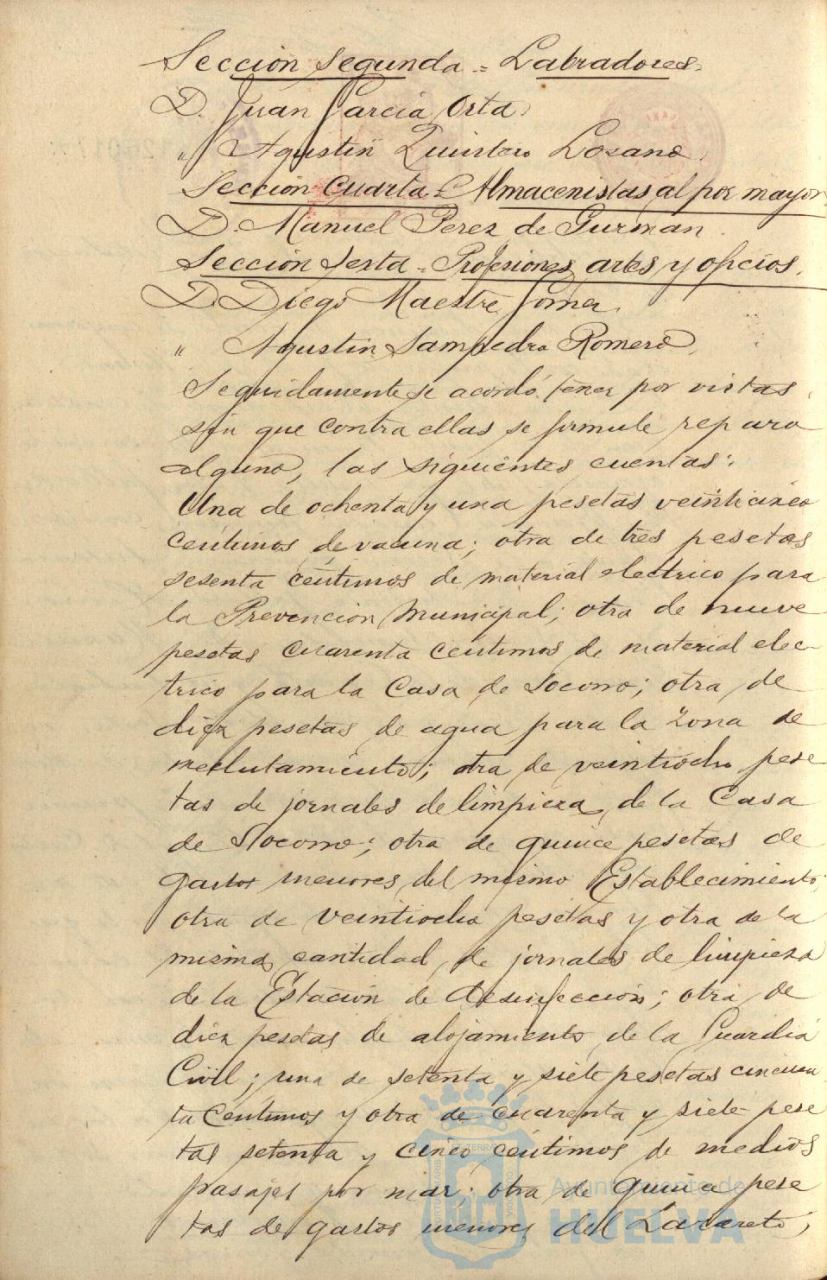 Sección Segunda = Labradores.
D. Juan García Orta.
" Agustín Quintero Lozano.
Sección Cuarta = Almacenistas al por mayor
D. Manuel Perez de Guzman.
Sección Sexta = Profesiones, artes y oficios.
D. Diego Maestre Gomez.
" Agustín Sampedro Romero.
Seguidamente se acordó tener por vistas
sin que contra ellas se formule reparo
alguno, las siguientes cuentas:
Una de ochenta y una pesetas veinticinco
centimos de vacuna; otra de tres pesetas
sesenta centimos de material electrico para
la Prevención Municipal; otra de nueve
pesetas cuarenta centimos de material elec-
trico para la Casa de Socorro; otra de
diez pesetas de agua para la Zona de
reclutamiento; otra de veintiocho pese
tas de jornales de limpieza de la Casa
de Socorro; otra de quince pesetas de
gastos menores del mismo Establecimiento;
otra de veintiocho pesetas y otra de la
misma cantidad, de jornales de limpieza
de la Estación de desinfección; otra de
diez pesetas de alojamiento de la Guardia
Civil; una de setenta y siete pesetas cincuen
ta centimos y otra de cuarenta y siete pese
tas setenta y cinco centimos de medios
pasajes por mar; otra de quince pese
tas de gastos menores del Lazareto;
Ayuntamiento de
HUELVA